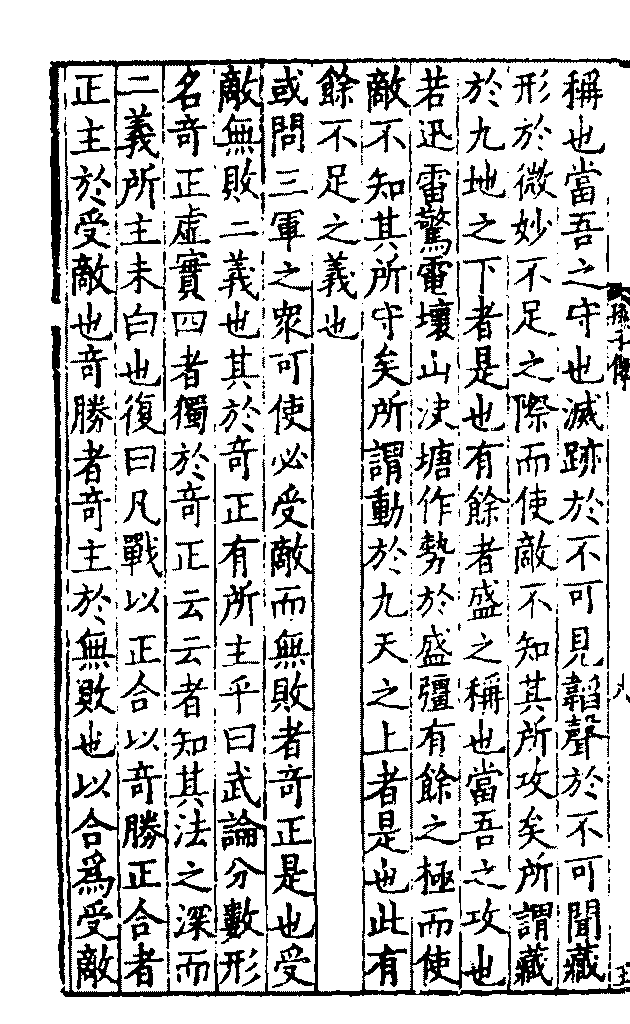 稱也當吾之守也滅跡於不可見韜聲於不可聞藏
形於微妙不足之際而使敵不知其所攻矣所謂藏
於九地之下者是也有餘者盛之稱也當吾之攻也
若迅雷驚電壞山决塘作勢於盛彊有餘之極而使
敵不知其所守矣所謂動於九天之上者是也此有
餘不足之義也
或問三軍之衆可使必受敵而無敗者奇正是也受
敵無敗二義也其於奇正有所主乎曰武論分數形
名奇正虛實四者獨於奇正云云者知其法之深而
二義所主未白也復曰凡戰以正合以奇勝正合者
正主於受敵也奇勝者奇主於無敗也以合爲受敵